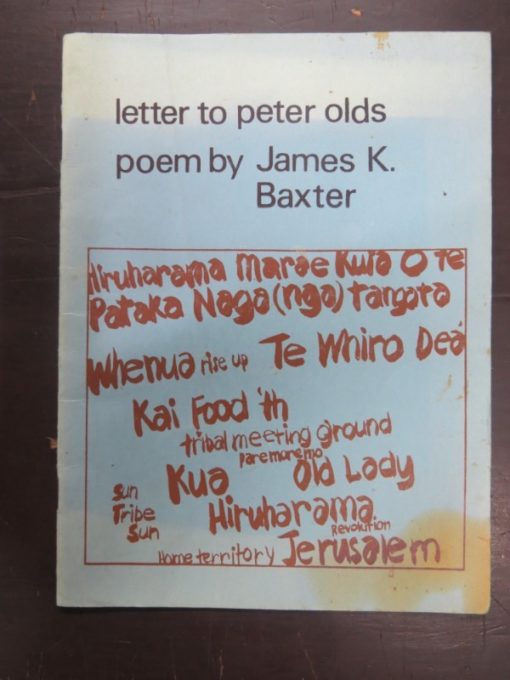 letter to peter olds
poem by James K.
Baxter
Hiruharama Marae Kwa O te
Pataka Naga (nga) tangata
Whenua rise up Te Whiro Dea
Kai Food 'th
tribal meeting ground
paremoremo
Kua Old Lady
Sun
Tribe
Sun
Hiruharama
Revolution
Home territory Jerusalem